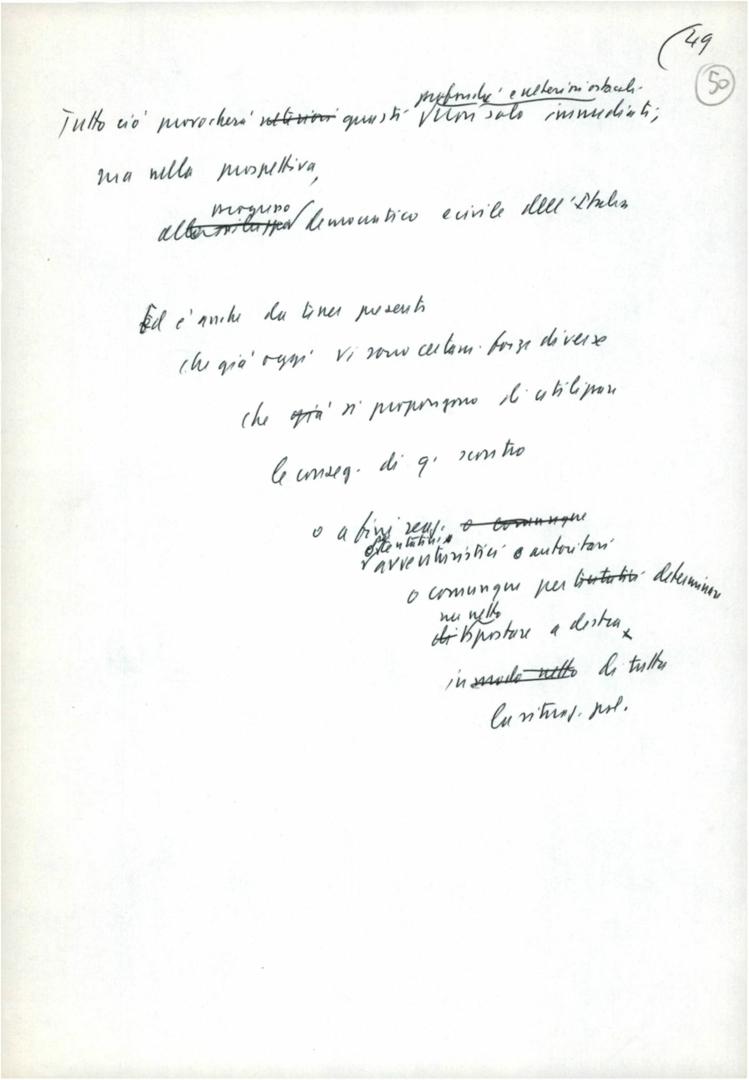 49
50
profondi e ulteriori ostacoli
Tutto ciò provocherà ulteriori guasti non solo immediati,
ma nella prospettiva,
progresso
allo sviluppo democratico e civile dell'Italia
Ed è anche da tener presente
che già oggi vi sono certam. forze diverse
che già si propongono di utilizzare
le conseg. di q. scontro
o a fini reaz. o comunque
o tentativi
avventuristici e autoritari
o comunque per tentativi determinare
un netto
di spostare a destra x
in modo netto di tutta
la situaz. pol.